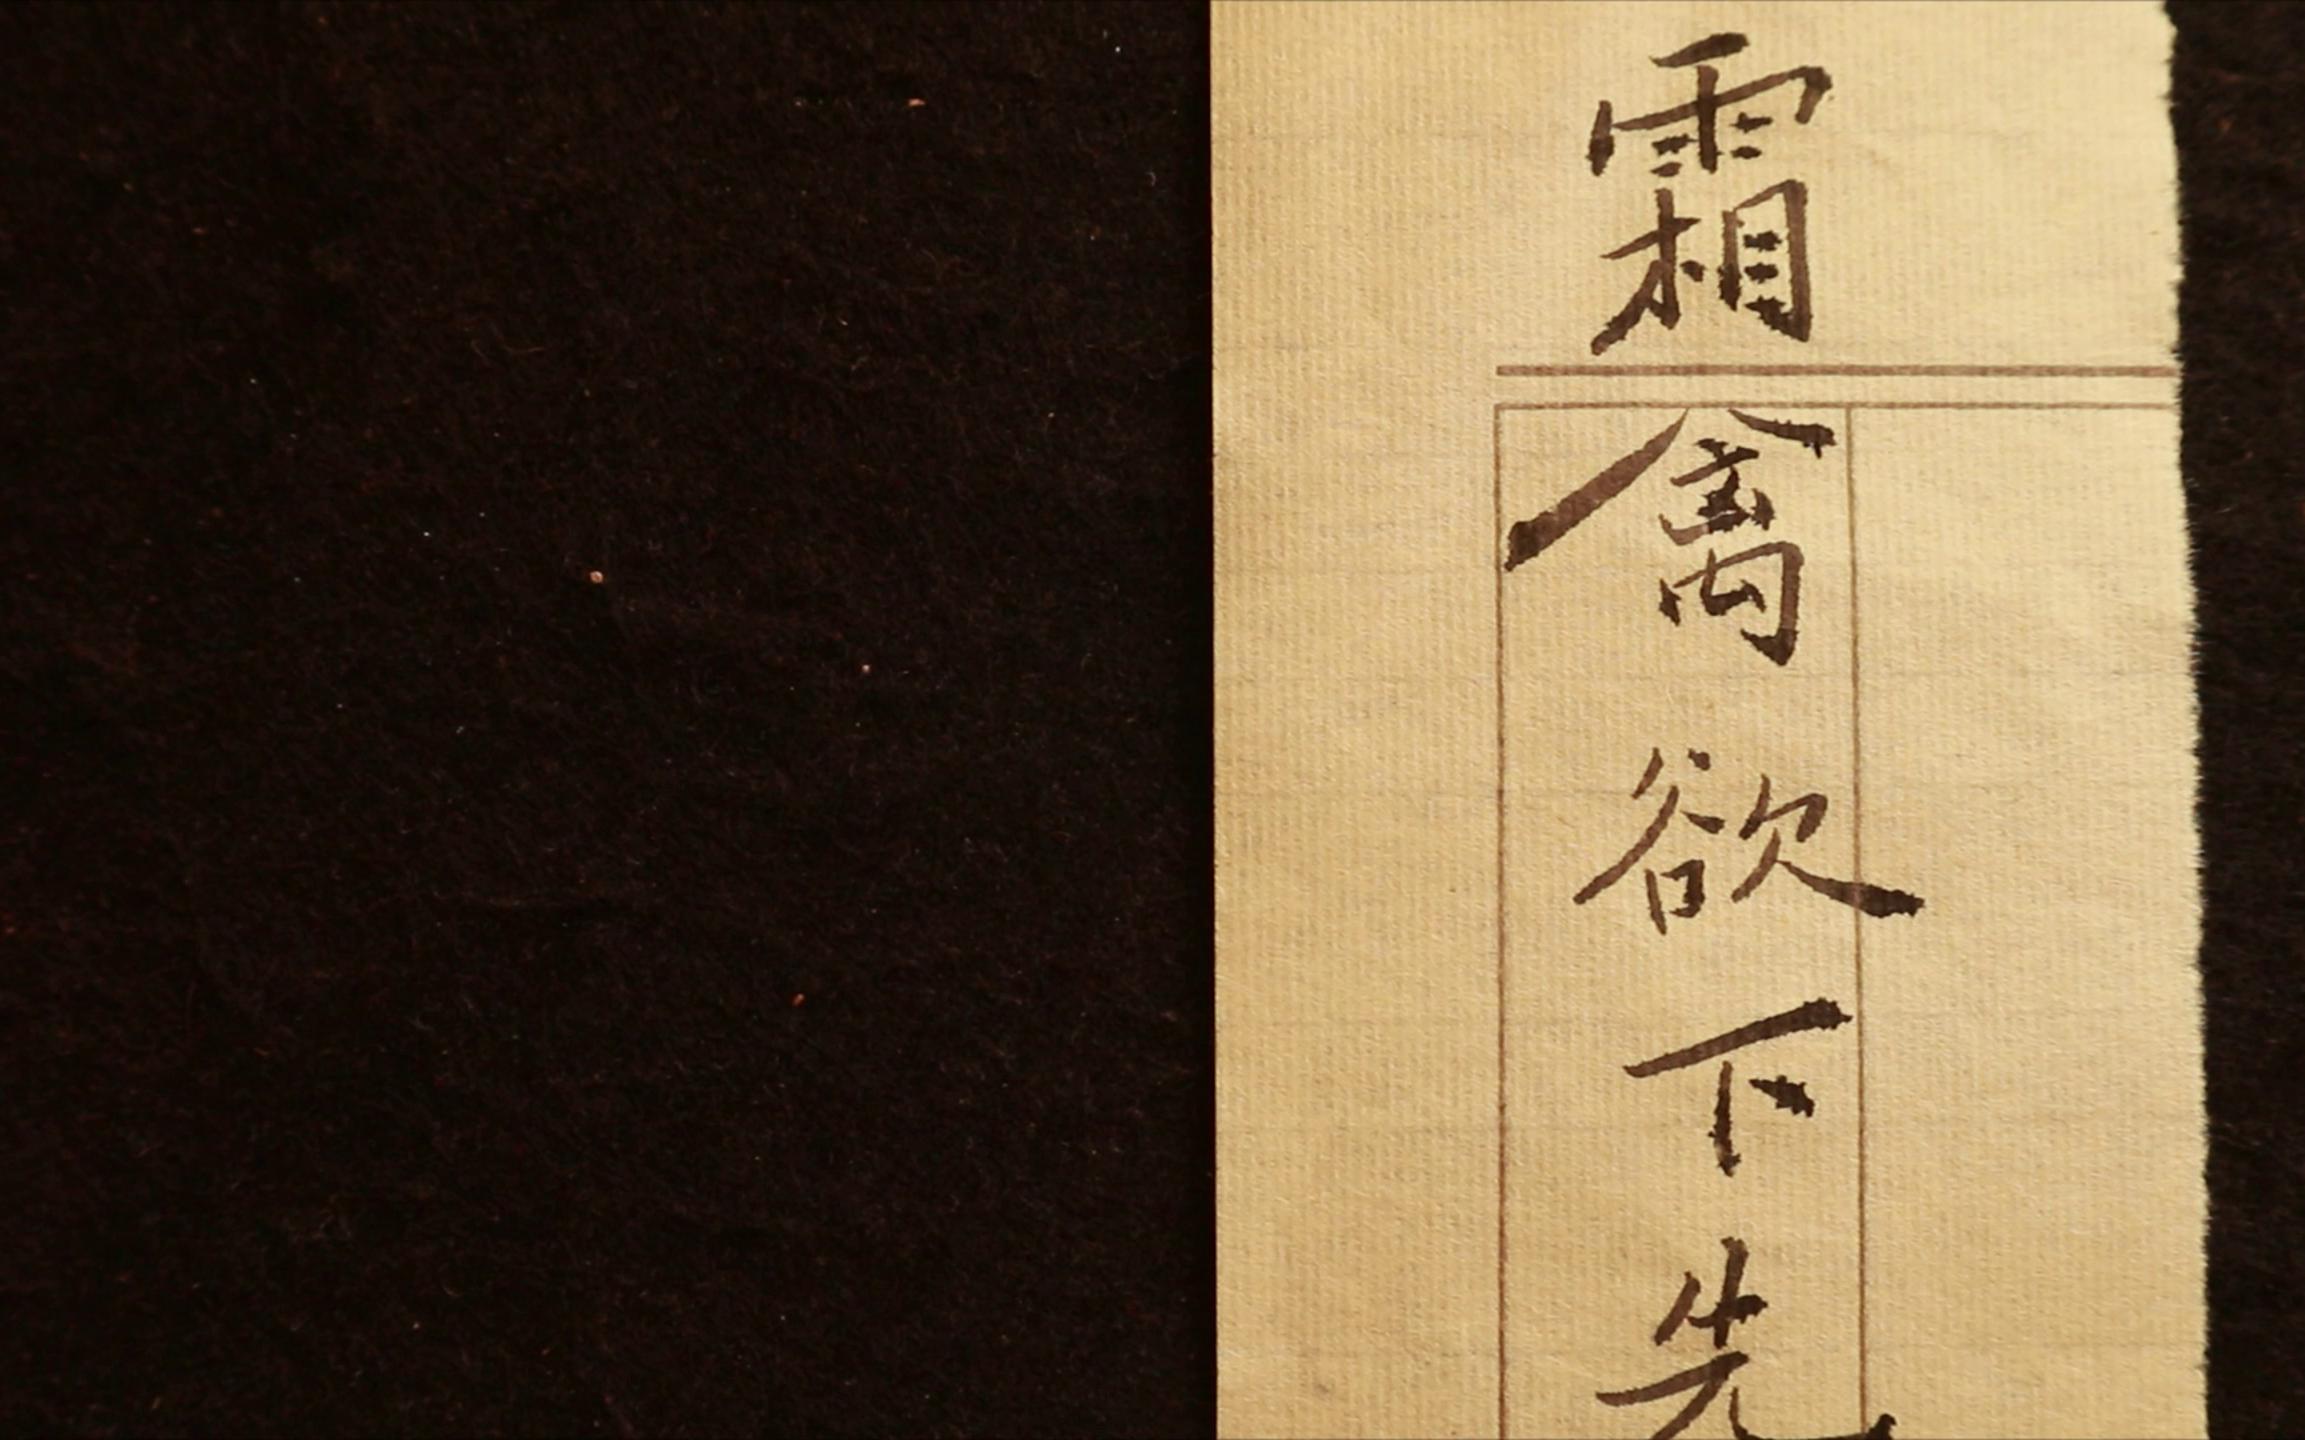 霜禽欲下先